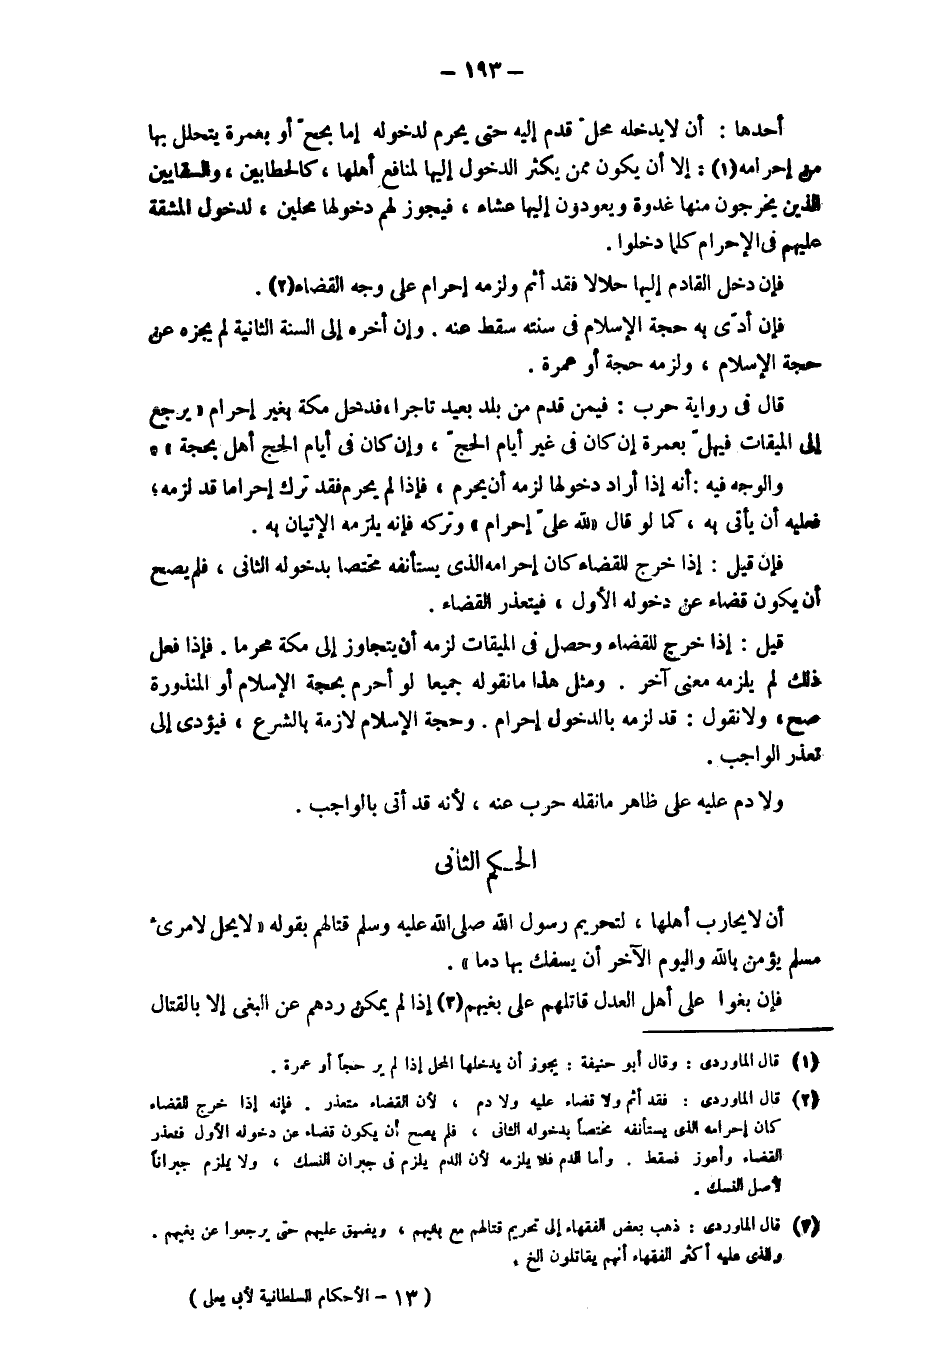 – ١٩٣ –
أحدها : أن لايدخله محلّ قدم إليه حتى يحرم لدخوله إما بحجّ أو بعمرة يتحلل بها
من إحرامه(١) : إلا أن يكون ممن يكثر الدخول إليها لمنافع أهلها ، كالحطابين ، والسقايين
الذين يخرجون منها غدوة ويعودون إليها عشاء ، فيجوز لهم دخولها محلين ، لدخول المشقة
عليهم فى الإحرام كلما دخلوا .
فإن دخل القادم إليها حلالا فقد أثم ولزمه إحرام على وجه القضاء(٢) .
فإن أدّى به حجة الإسلام فى سنته سقط عنه . وإن أخره إلى السنة الثانية لم يجزه عن
حجة الإسلام ، ولزمه حجة أو عمرة .
قال فى رواية حرب : فيمن قدم من بلد بعيد تاجرا ، فدخل مكة بغير إحرام « يرجع
إلى الميقات فيهلّ بعمرة إن كان فى غير أيام الحجّ ، وإن كان فى أيام الحج أهل بحجة » .
والوجه فيه : أنه إذا أراد دخولها لزمه أن يحرم ، فإذا لم يحرم فقد ترك إحراما قد لزمه ؛
فعليه أن يأتى به ، كما لو قال « لله علىّ إحرام » وتركه فإنه يلزمه الإتيان به .
فإن قيل : إذا خرج للقضاء كان إحرامه الذى يستأنفه مختصا بدخوله الثانى ، فلم يصح
أن يكون قضاء عن دخوله الأول ، فيتعذر القضاء .
قيل : إذا خرج للقضاء وحصل فى الميقات لزمه أن يتجاوز إلى مكة محرما . فإذا فعل
ذلك لم يلزمه معنى آخر . ومثل هذا مانقوله جميعا لو أحرم بحجة الإسلام أو المنذورة
صح ، ولانقول : قد لزمه بالدخول إحرام . وحجة الإسلام لازمة بالشرع ، فيؤدى إلى
تعذر الواجب .
ولا دم عليه على ظاهر مانقله حرب عنه ، لأنه قد أتى بالواجب .
الحكم الثانى
أن لايحارب أهلها ، لتحريم رسول الله صلى الله عليه وسلم قتالهم بقوله « لايحل لامرىء
مسلم يؤمن بالله واليوم الآخر أن يسفك بها دما » .
فإن بغوا على أهل العدل قاتلهم على بغيهم(٣) إذا لم يمكن ردهم عن البغى إلا بالقتال
(١) قال الماوردى : وقال أبو حنيفة : يجوز أن يدخلها المحل إذا لم ير حجاً أو عمرة .
(٢) قال الماوردى : فقد أثم ولا قضاء عليه ولا دم ، لأن القضاء متعذر . فإنه إذا خرج للقضاء
كان إحرامه الذى يستأنفه مختصاً بدخوله الثانى ، فلم يصح أن يكون قضاء عن دخوله الأول فتعذر
القضاء وأعوز فسقط . وأما الدم فلا يلزمه لأن الدم يلزم فى جبران النسك ، ولا يلزم جبراناً
لأصل النسك .
(٣) قال الماوردى : ذهب بعض الفقهاء إلى تحريم قتالهم مع بغيهم ، ويضيق عليهم حتى يرجعوا عن بغيهم .
والذى عليه أكثر الفقهاء أنهم يقاتلون الخ .
( ١٣ – الأحكام السلطانية لأبى يعلى )